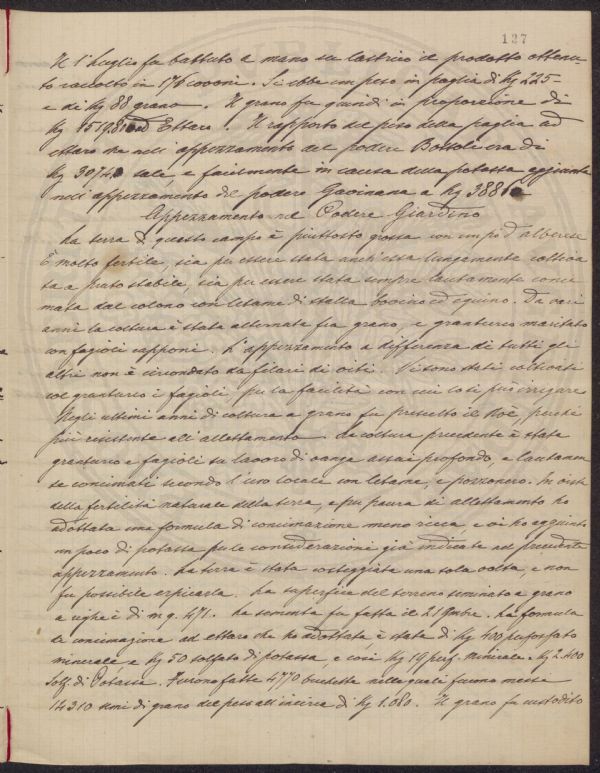 137
Il 1° luglio fu battuto a mano su lastrico il prodotto ottenu-
to raccolto in 176 covoni. Si ebbe un peso in paglia di Kg 225
e di Kg 88 grano. Il grano fu quindi in proporzione di
Kg ad Ettaro. Il rapporto del peso della paglia ad
ettaro ma nell'appezzamento del podere Bottoli era di
Kg 3074 sale, e facilmente in causa della potassa aggiunta
nell'appezzamento del podere Gavinana a Kg
Appezzamento nel Podere Giardino
La terra di questo campo è piuttosto grossa con un po' d'alberese
È molto fertile, sia per essere stata anch'essa lungamente coltiva
ta a prato stabile, sia per essere stata sempre lautamente conci
mata dal colono con letame di stalla bovino ed equino. Da vari
anni la coltura è stata alternata fra grano, e granturco maritato
con fagioli capponi. L'appezzamento a differenza di tutti gli
altri non è circondato da filari di viti. Vi sono stati coltivati
col granturco i fagioli, per la facilità con cui lo si può irrigare
Negli ultimi anni di coltura a grano fu prescelto il Noè, perché
più resistente all'allettamento. La coltura precedente è stata
granturco e fagioli su lavoro di vanga assai profondo, e lautamen
te concimati secondo l'uso locale con letame, e pozzonero. In vista
della fertilità naturale della terra, e per paura di allettamento ho
adottata una formula di concimazione meno ricca, e vi ho aggiunto
un poco di potassa per le considerazioni già indicate nel precedente
appezzamento. La terra è stata vangata una sola volta, e non
fu possibile erpicarla. La superficie del terreno seminato a grano
a righe è di m.q. 471. La semina fu fatta il 21 9mbre. La formula
di concimazione ad ettaro che ho adottata, è stata di Kg 400 perfosfato
minerale e Kg 50 solfato di potassa, e così Kg 19 perf. minerale. Kg 2.400
Solf. di Potassa. Furono fatte 4770 buchette nelle quali furono messi
14310 semi di grano del peso all'incirca di Kg 1.080. Il grano fu custodito